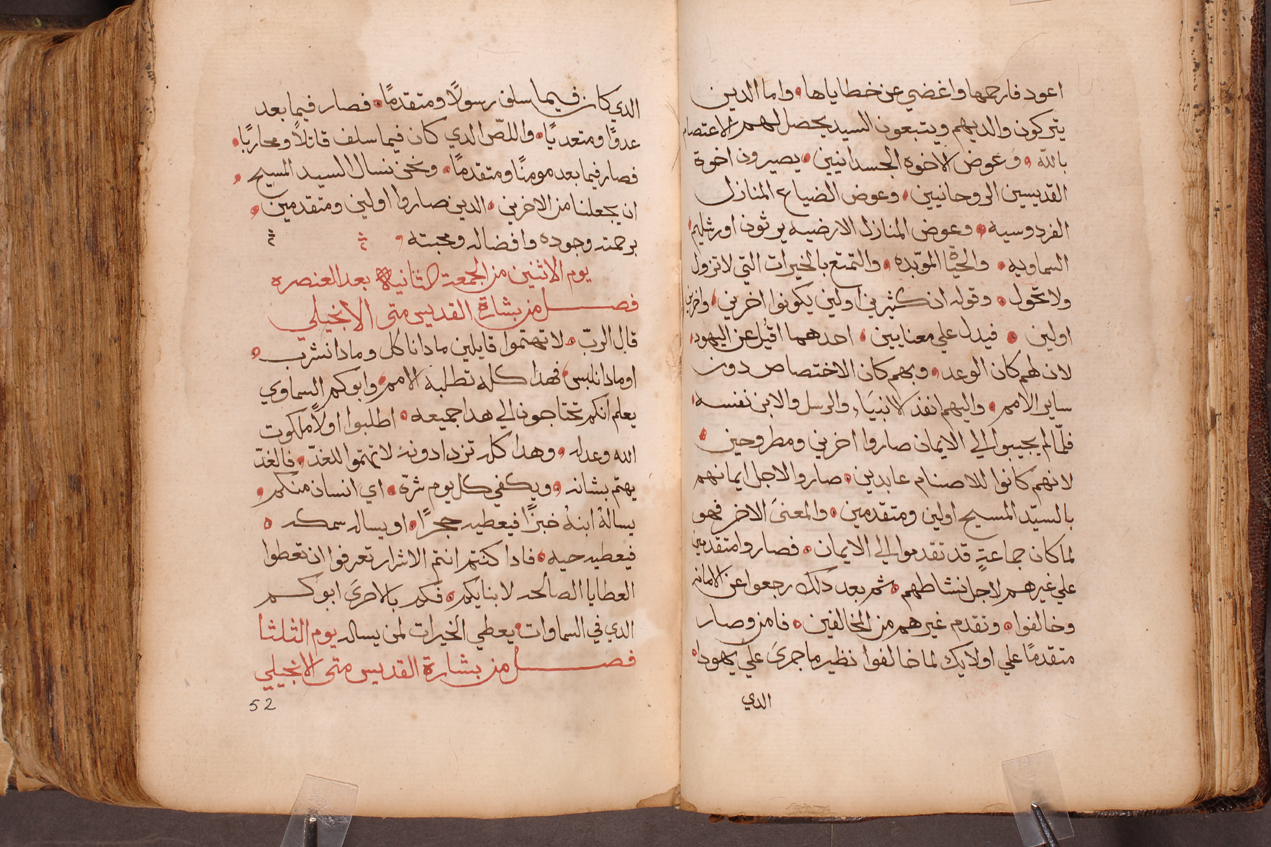 اعود فارحمها واغضي عن خطاياها واما الدين
يتركون والديهم ويتبعون السيد يحصل لهم الاعتصام
بالله وعوض الاخوه الجسدانيين يصيرون اخوة
القديسين الروحانيين وعوض الضياع المنازل
الفردوسيه وعوض المنازل الارضيه يرثون اورشليم
السماويه والحياة الموبده والتمتع بالخيرات التي لا تزول
ولا تحول وقوله ان كثيرين اولين يكونوا اخرين واخرين
اولين فيدل علي معنايين احدهما اقيل عن اليهود
لان لهم كان الوعد وبهم كان الاختصاص دون
ساير الامم واليهم انفذ الانبيا والرسل والابن نفسه
فلما لم يجيبوا الي الايمان صاروا اخرين ومطروحين
لانهم كانوا للاصنام عابدين صاروا لاجل ايمانهم
بالسيد المسيح اولين ومتقدمين والمعني الاخر فهو
لما كان جماعة قد تقدموا الي الايمان فصاروا متقدمين
علي غيرهم لاجل نشاطهم ثم بعد دلك رجعوا عن الامانه
وخالفوا وتقدم غيرهم من المخالفين فامن وصار
متقدما علي اولايك لما خالفوا نظير ما جري علي يهودا
الدي
الدي كان فيما سلف رسولًا ومتقدمًا فصار فيما بعد
عدوًا ومتعديًا واللص الدي كان فيما سلف قاتلًا ومحاربًا
فصار فيما بعد مومنًا ومتقدمًا ونحن نسال السيد المسيح
ان يجعلنا من الاخرين الدين صاروا اولين ومتقدمين
برحمته وجوده وافضاله ومحبته
يوم الاثنين من الجمعة الثانيه بعد العنصره
فصل من بشارة القديس متي الانجيلي
قال الرب لا تهتموا قايلين مادا ناكل ومادا نشرب
او مادا نلبس فهدا كله تطلبه الامم وابوكم السماوي
يعلم انكم تحتاجون الي هدا جميعه اطلبوا اولًا ملكوت
الله وعدله وهدا كله تزدادونه لا تهتموا للغد فالغد
يهتم بشانه ويكفي كل يوم شره اي انسان منكم
يساله ابنه خبزًا فيعطيه حجرًا او يساله سمكه
فيعطيه حيه فادا كنتم انتم الاشرار تعرفوا ان تعطوا
العطايا الصالحه لابنايكم فكم بالاحري ابوكم
الدي في السماوات يعطي الخيرات لمن يساله يوم الثلثا
فصل من بشارة القديس متي الانجيلي
52